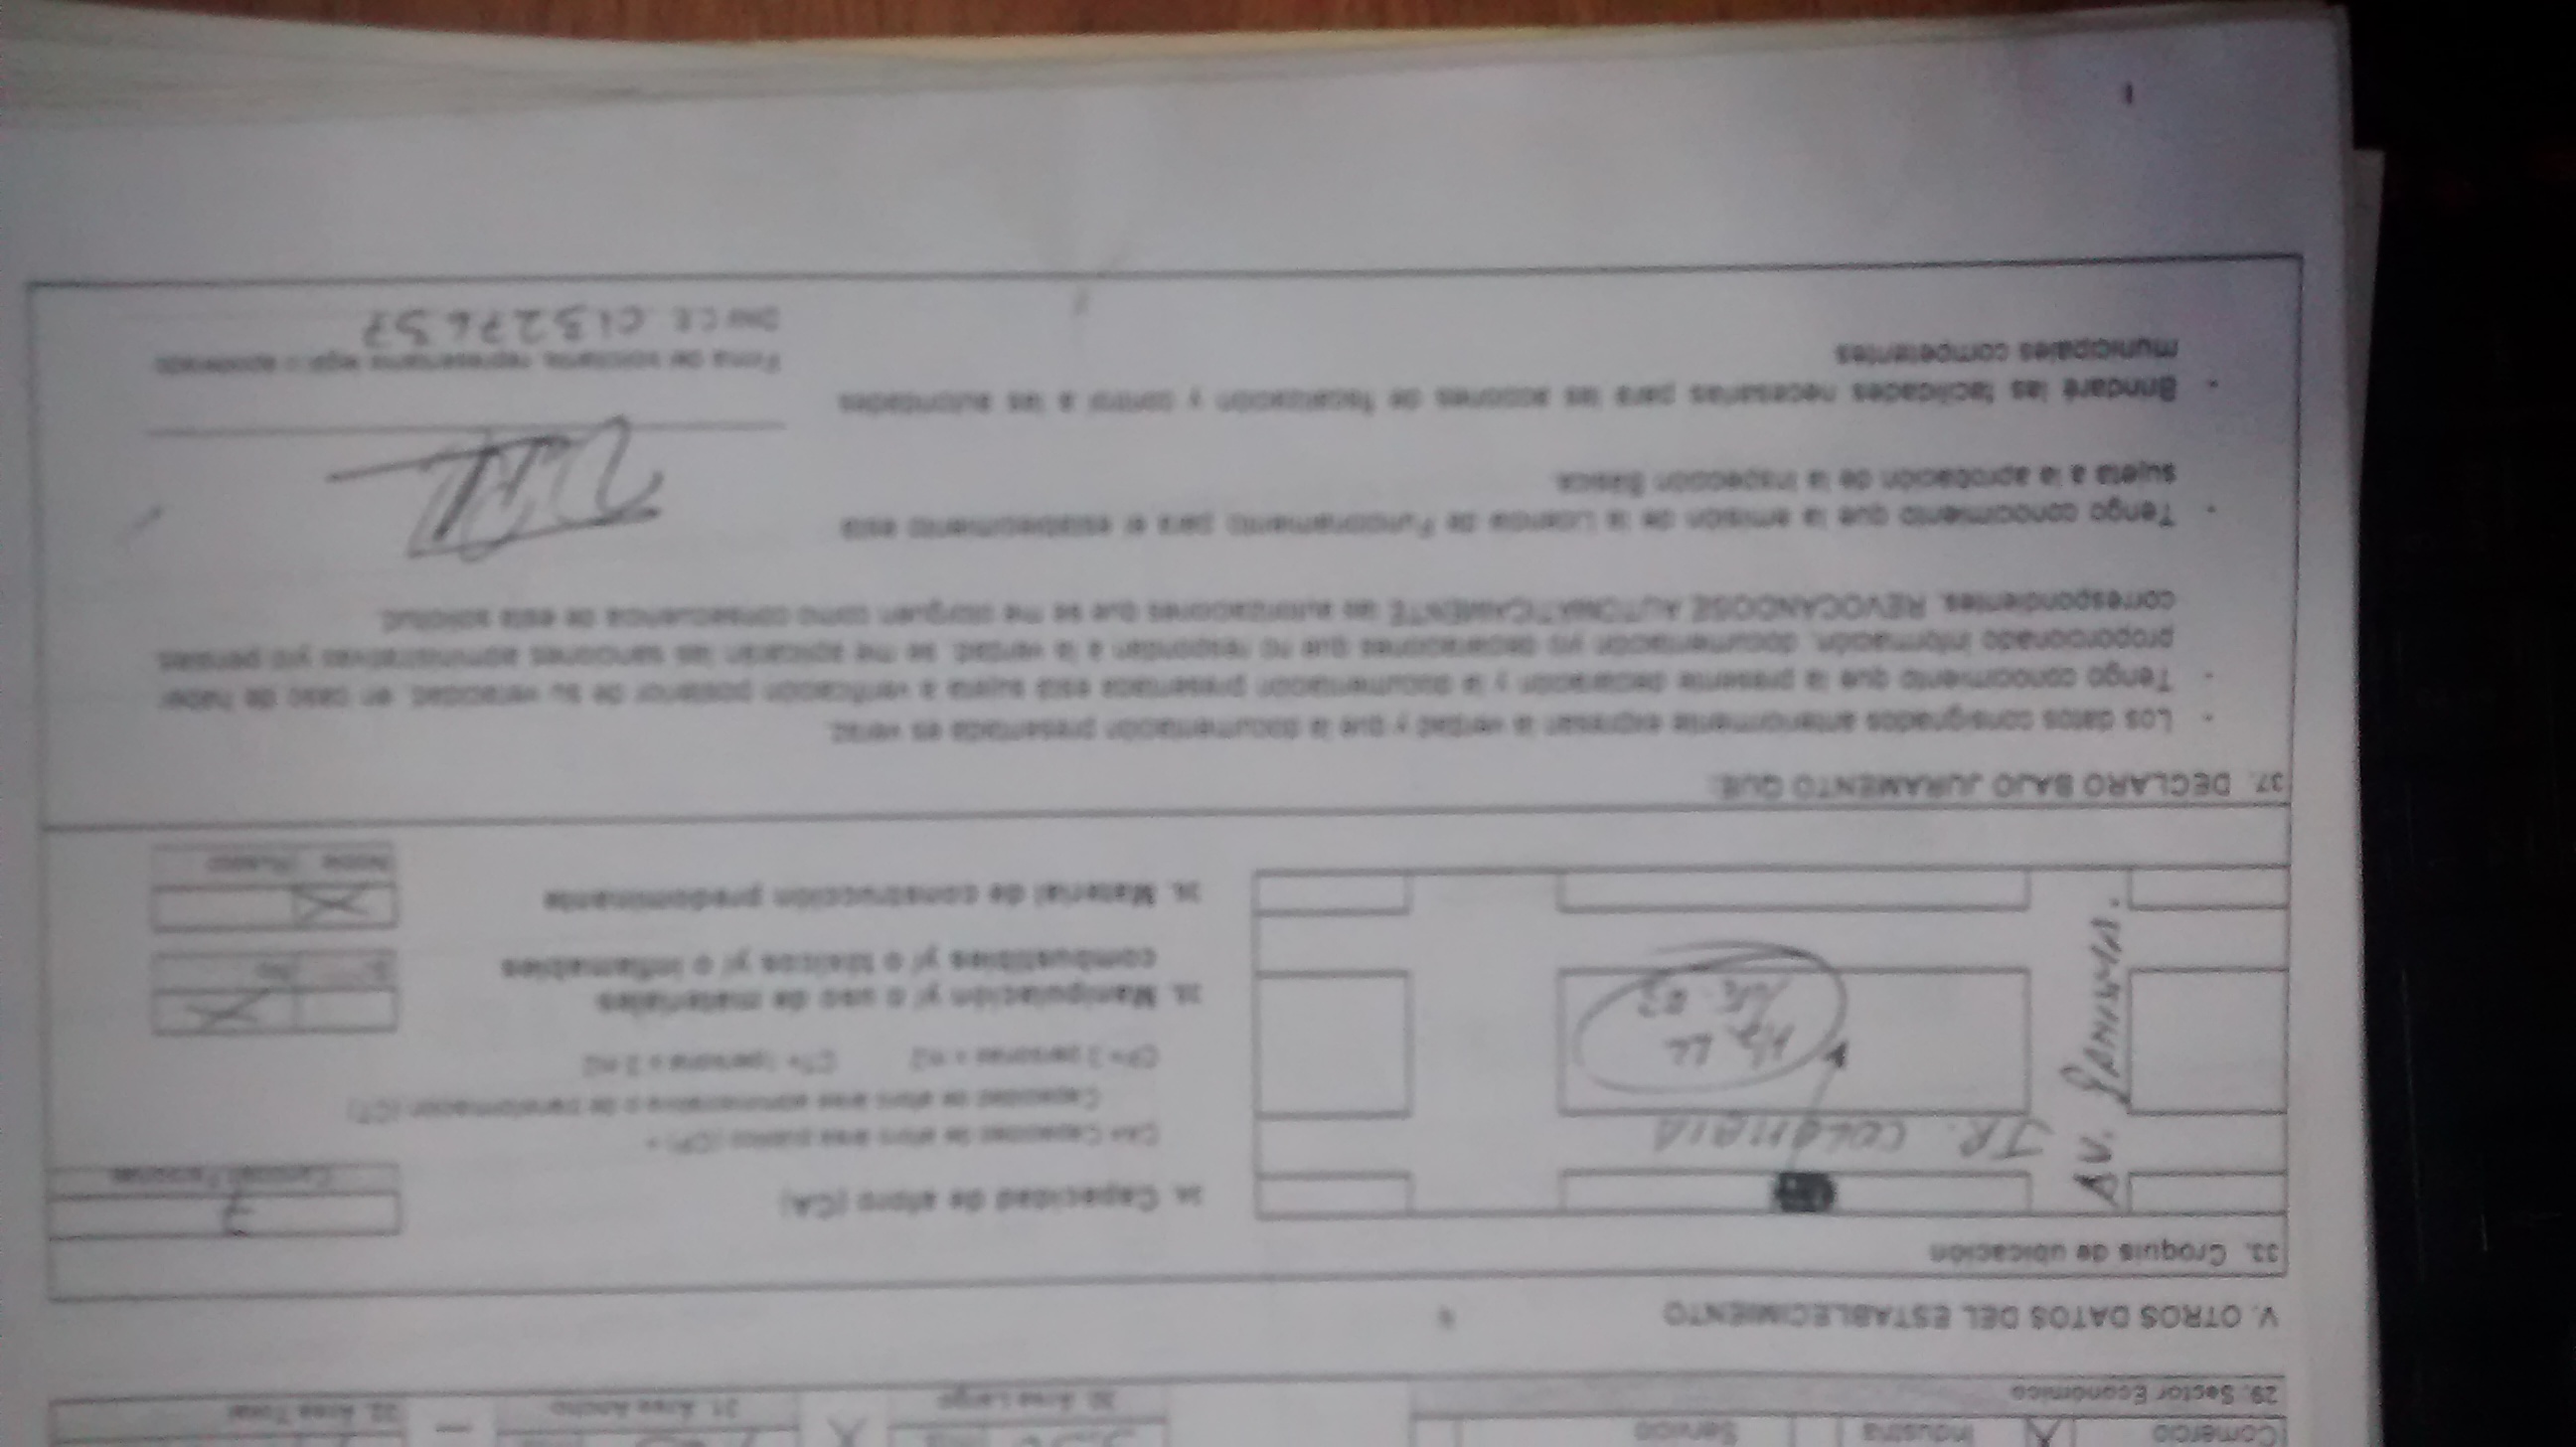 Comercio X Industria Servicio
29. Sector Económico
X
30. Área Largo
31. Área Ancho
32. Área Total
V. OTROS DATOS DEL ESTABLECIMIENTO
33. Croquis de ubicación
JR. COLOMBIA
AV.
Mz LL
34. Capacidad de aforo (CA)
7
Cantidad Personas
CA= Capacidad de aforo área público (CP) +
Capacidad de aforo área administrativa o de transformación (CT)
CP= 3 personas x m2 CT= 1persona x 3 m2
35. Manipulación y/ o uso de materiales
combustibles y/ o tóxicos y/ o inflamables
X
Si No
36. Material de construcción predominante
X
Noble
37. DECLARO BAJO JURAMENTO QUE:
- Los datos consignados anteriormente expresan la verdad y que la documentación presentada es veraz.
- Tengo conocimiento que la presente declaración y la documentación presentada está sujeta a verificación posterior de su veracidad, en caso de haber
proporcionado información, documentación y/o declaraciones que no respondan a la verdad, se me aplicarán las sanciones administrativas y/o penales
correspondientes, REVOCANDOSE AUTOMATICAMENTE las autorizaciones que se me otorguen como consecuencia de esta solicitud.
- Tengo conocimiento que la emisión de la Licencia de Funcionamiento para el establecimiento está
sujeta a la aprobación de la Inspección Básica.
- Brindaré las facilidades necesarias para las acciones de fiscalización y control a las autoridades
municipales competentes
Firma del solicitante, representante legal o apoderado
DNI/ C.E.